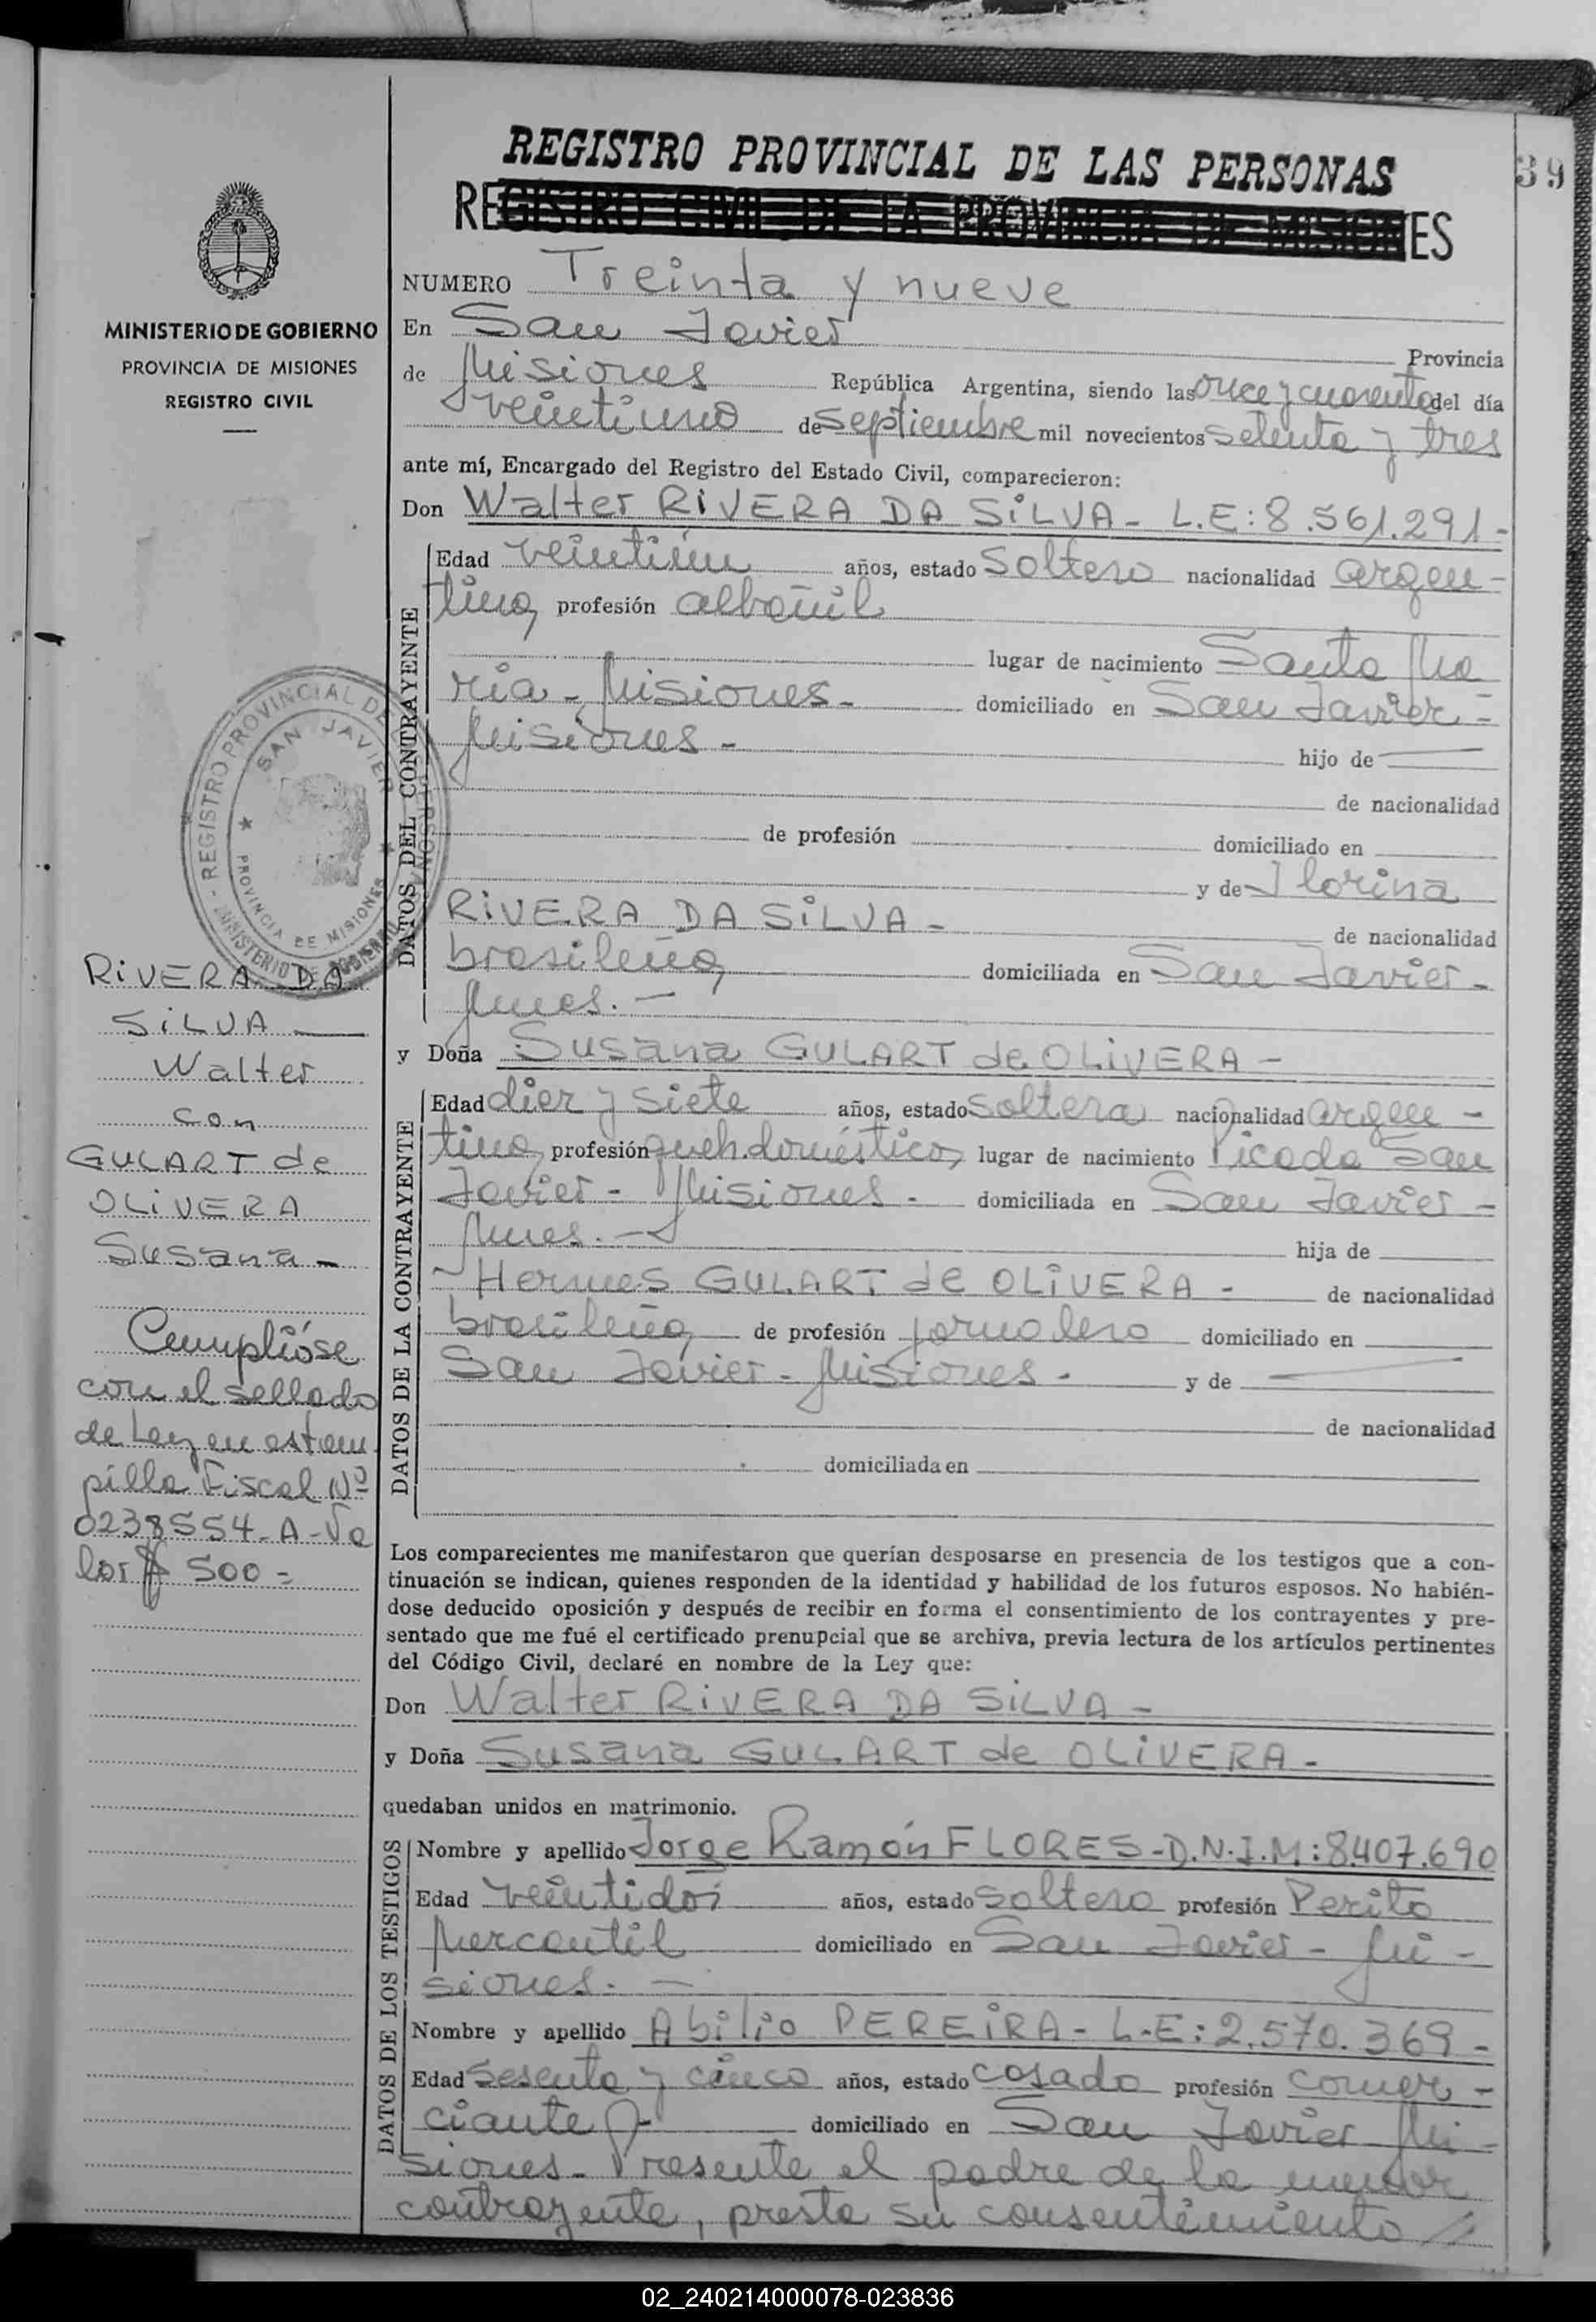 REGISTRO PROVINCIAL DE LAS PERSONAS
39
REGISTRO CIVIL DE LA PROVINCIA DE MISIONES
MINISTERIO DE GOBIERNO
PROVINCIA DE MISIONES
REGISTRO CIVIL
NUMERO Treinta y nueve
En San Javier Provincia
de Misiones República Argentina, siendo las once y cuarenta del día
veintiuno de septiembre mil novecientos setenta y tres
ante mí, Encargado del Registro del Estado Civil, comparecieron:
Don Walter RIVERA DA SILVA - L.E: 8.561.291-
DATOS DEL CONTRAYENTE
Edad veintiún años, estado soltero nacionalidad argen-
tina, profesión albañil
lugar de nacimiento Santa Ma
ría - Misiones - domiciliado en San Javier -
Misiones - hijo de
de nacionalidad
de profesión domiciliado en
y de Ilorina
RIVERA DA SILVA - de nacionalidad
brasileña, domiciliada en San Javier -
Mnes. -
y Doña Susana GULART de OLIVERA -
DATOS DE LA CONTRAYENTE
Edad diez y siete años, estado soltera nacionalidad argen -
tina, profesión queh. domésticos, lugar de nacimiento Picada San
Javier - Misiones - domiciliada en San Javier -
Mnes. - hija de
- Hermes GULART de OLIVERA - de nacionalidad
brasileña, de profesión jornalero domiciliado en
San Javier - Misiones - y de
de nacionalidad
domiciliada en
Los comparecientes me manifestaron que querían desposarse en presencia de los testigos que a con-
tinuación se indican, quienes responden de la identidad y habilidad de los futuros esposos. No habién-
dose deducido oposición y después de recibir en forma el consentimiento de los contrayentes y pre-
sentado que me fué el certificado prenupcial que se archiva, previa lectura de los artículos pertinentes
del Código Civil, declaré en nombre de la Ley que:
Don Walter RIVERA DA SILVA -
y Doña Susana GULART de OLIVERA -
quedaban unidos en matrimonio.
DATOS DE LOS TESTIGOS
Nombre y apellido Jorge Ramón FLORES - D.N.I.M: 8.407.690
Edad veintidós años, estado soltero profesión Perito
Mercantil domiciliado en San Javier - Mi -
siones. -
Nombre y apellido Abilio PEREIRA - L.E: 2.570.369 -
Edad sesenta y cinco años, estado casado profesión comer -
ciante domiciliado en San Javier Mi -
siones - Presente el padre de la menor
contrayente, presta su consentimiento //
REGISTRO PROVINCIAL DE LAS PERSONAS
SAN JAVIER
PROVINCIA DE MISIONES
MINISTERIO DE GOBIERNO
RIVERA DA
SILVA
Walter
con
GULART de
OLIVERA
Susana -
Cumplióse
con el sellado
de Ley en estam
pilla Fiscal Nº
0238554-A-Va
lor $ 500 =
02_240214000078-023836